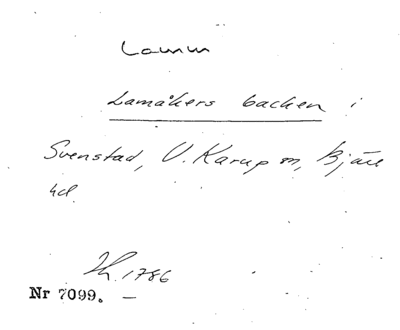 Lamm
Lamåkers backen i
Svenstad, V. Karup sn, Bjäre
hd.
1786
Nr 7099. —